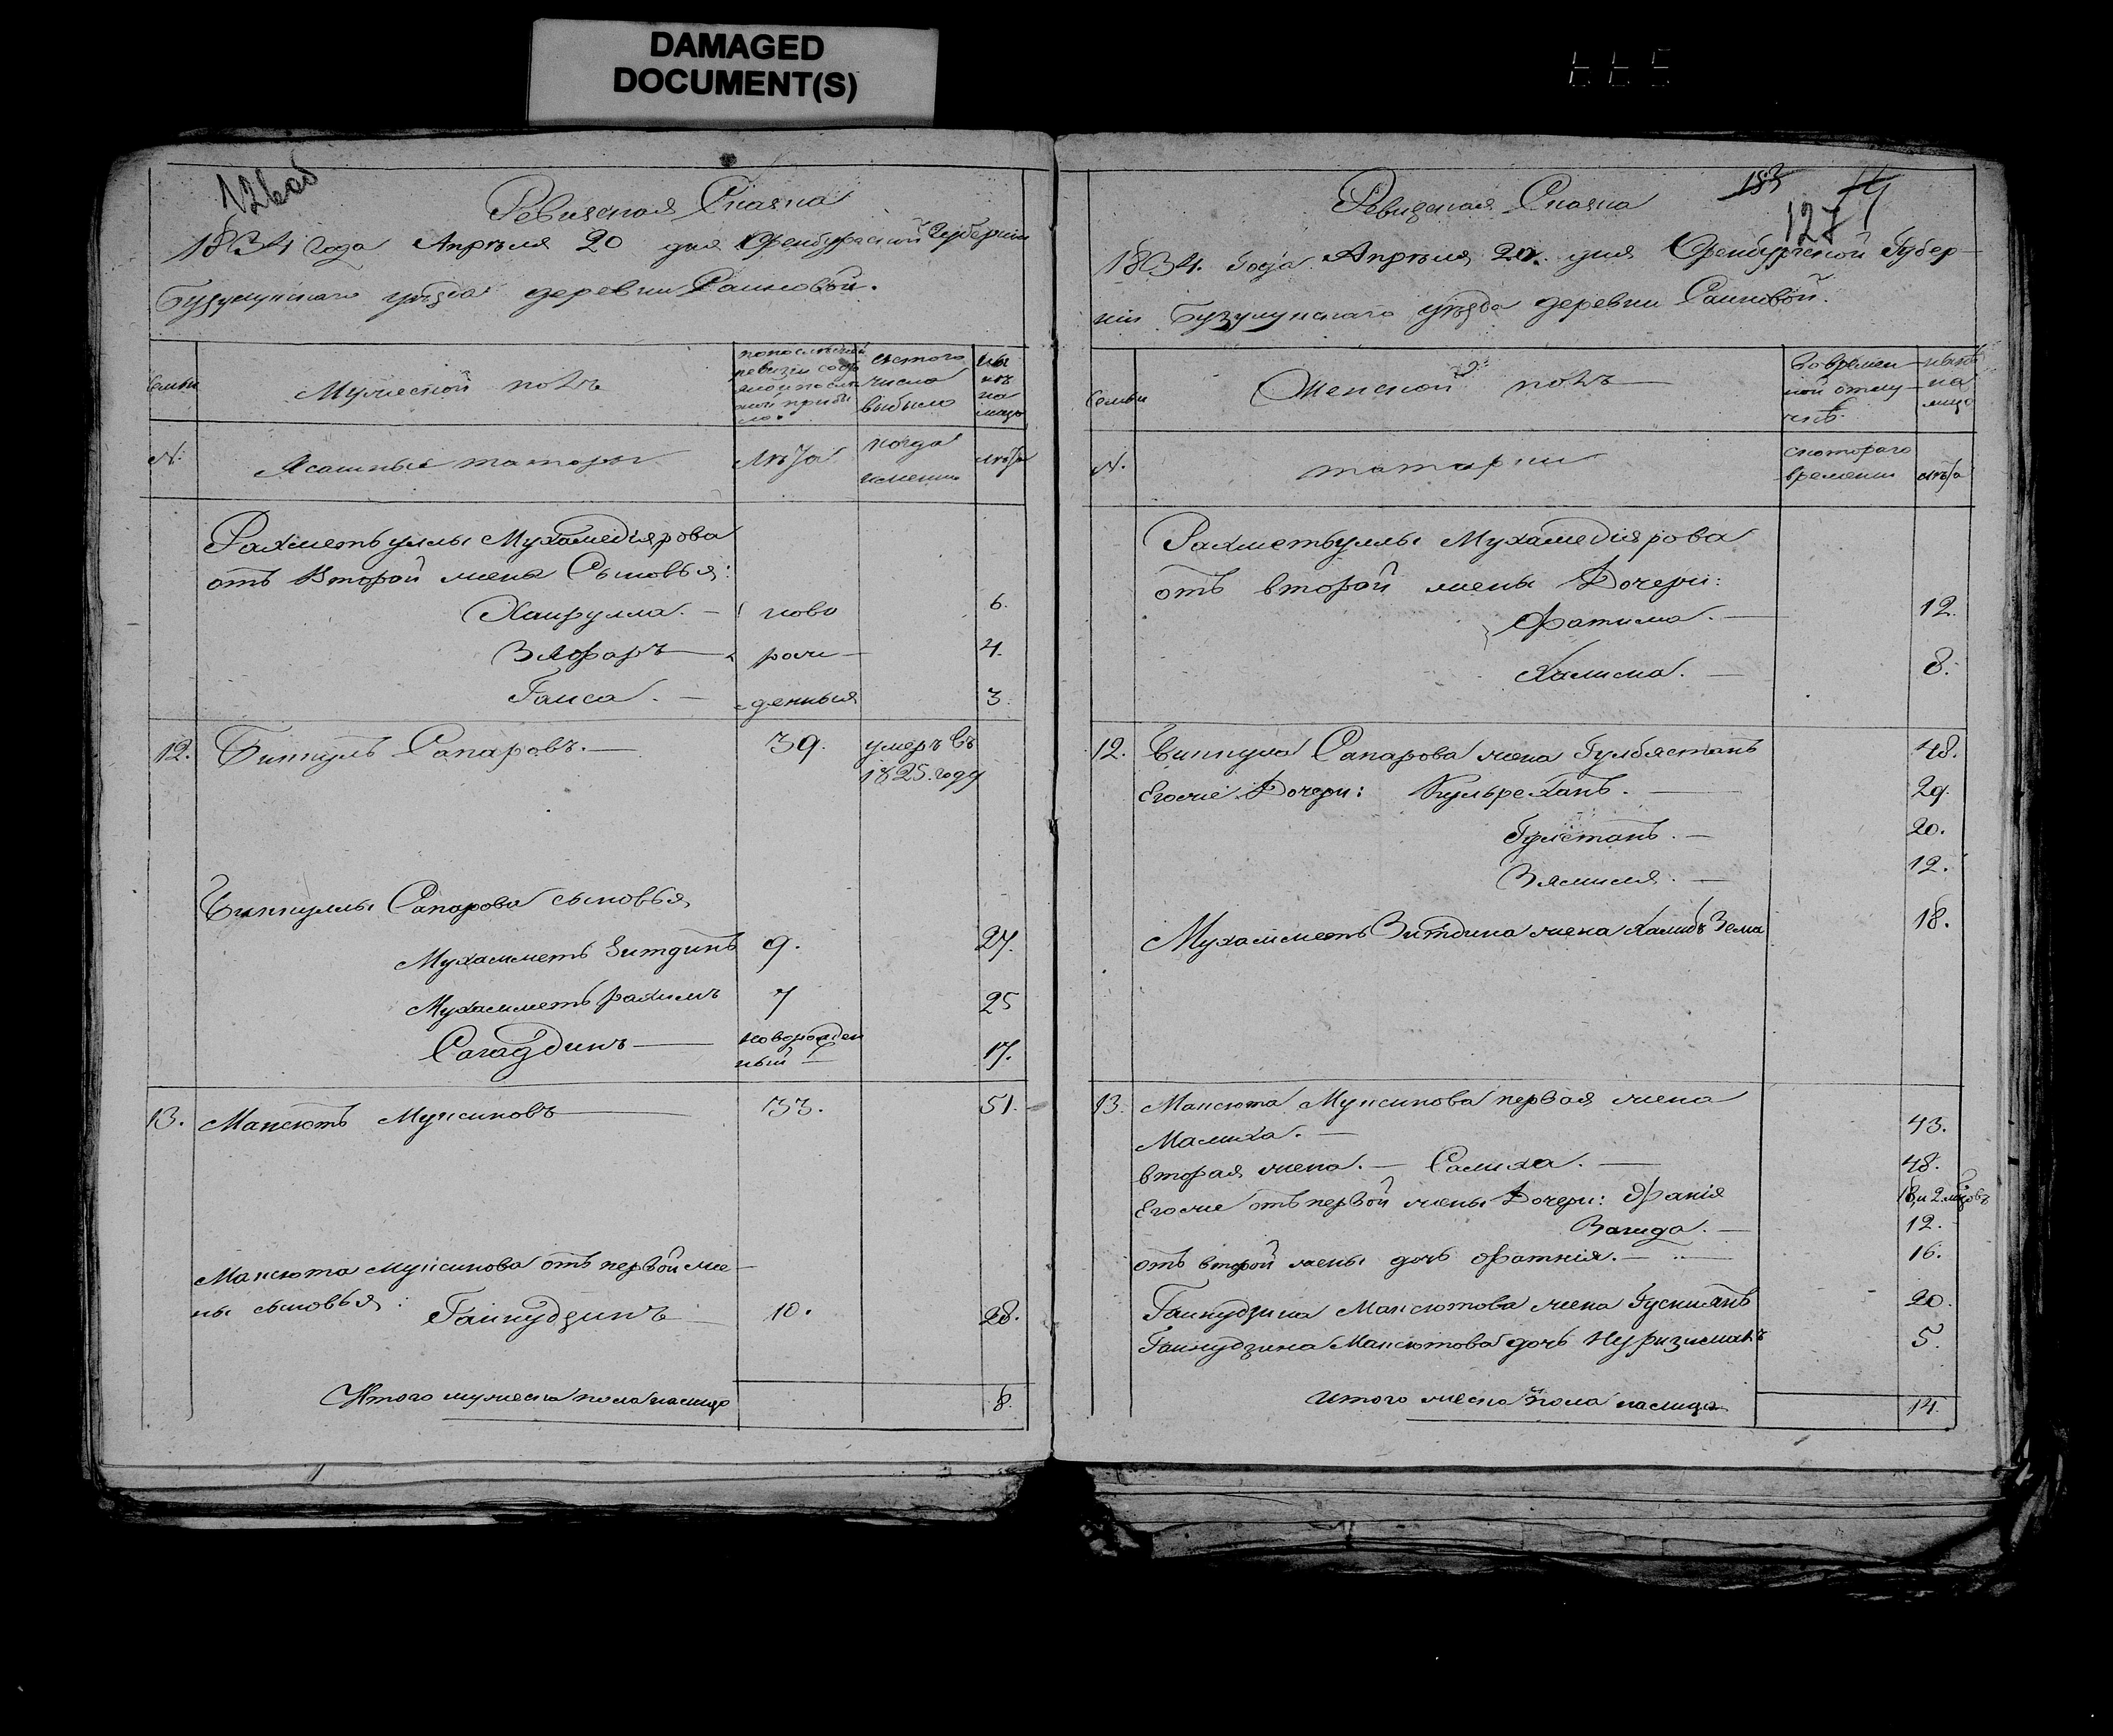 DAMAGED
DOCUMENT(S)
126 об
Ревизская Сказка
1834 года Апреля 20 дня Оренбургской Губернии
Бузулунскаго уезда деревни Саиновой.
Семьи
Мужеской полъ
изъ того
числа
выбыло
на
лицо
№:
Ясашные татары
Лета
когда
именно
Лета
Рахметьуллы Мухамедіярова
отъ второй жены Сыновья:
Хаирулла. — ново 6.
Зяфаръ — рож — 4.
Гаиса. — денныя 3.
12. Биккулъ Сапаровъ. — 39. умеръ въ
1825. году
Биккуллы Сапарова сыновья
Мухамметь Зитдинъ 9. 27.
Мухамметь рахимъ 7 25
Сагадинъ — новорожден
ный — 17.
13. Максютъ Муксиновъ — 33. 51.
Максюта Муксинова отъ первой же —
ны сыновья:
Гаинудзинъ — 10. 28.
Итого мужеска пола налицо 8.
183
127
Ревизская Сказка
1834. Года Апреля 20. дня Оренбургской Губер-
ніи Бузулунскаго уезда деревни Саиновой.
Семьи
Женской полъ
Во времен-
ной отлу-
чке
ныне
на
лицо
№.
татарки
с котораго
времени
лета
Рахметьуллы Мухамедіярова
отъ второй жены Дочери:
Фатима. — 12.
Халима. — 8.
12. Биккула Сапарова жена Гулбястанъ 48.
Его же Дочери: Кульреханъ. — 29.
Гулстанъ. — 20.
Зямиля. — 12.
Мухамметь Зитдина жена Халибъ Зема 18.
13. Максюта Муксинова первая жена
Малиха. — 43.
вторая жена. — Салиха. — 48.
Его же отъ первой жены Дочери: Фанія 18 и 2 мцовъ
Вагида. — 12.
отъ второй жены дочь Фатнія. — 16.
Гаинудзина Максютова жена Гускиянъ 20.
Гаинудзина Максютова дочь Нуризиманъ 5.
Итого женска пола налицо 14.